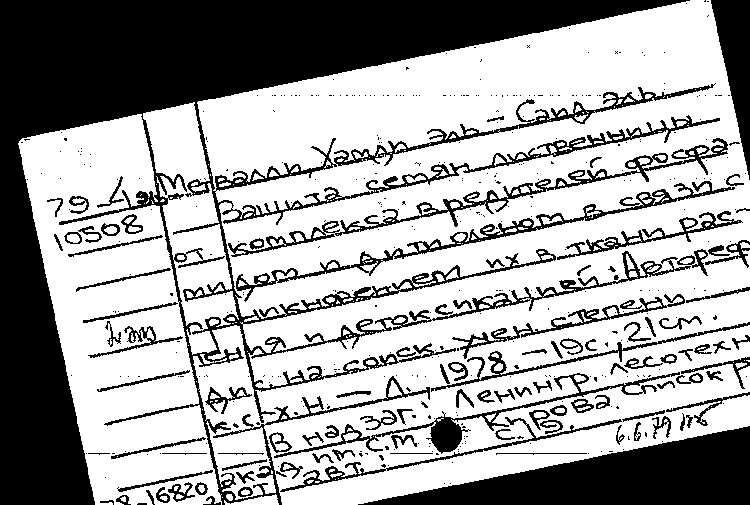 79-4 эль-Метвалли, Хамди эль-Саид эль.
10508 Защита семян лиственницы
от комплекса вредителей фосфа-
мидом и дитиоленом в связи с
проникновением их в ткани рас-
тения и детоксикацией: Автореф
дис. на соиск. учен. степени
к.с.-х.н. — Л., 1978. — 19с.; 21см.
В надзаг.: Ленингр. лесотехн
акад. им. С.М. Кирова. Список р
работ авт.: с. 18.
6.6.79
78-16820